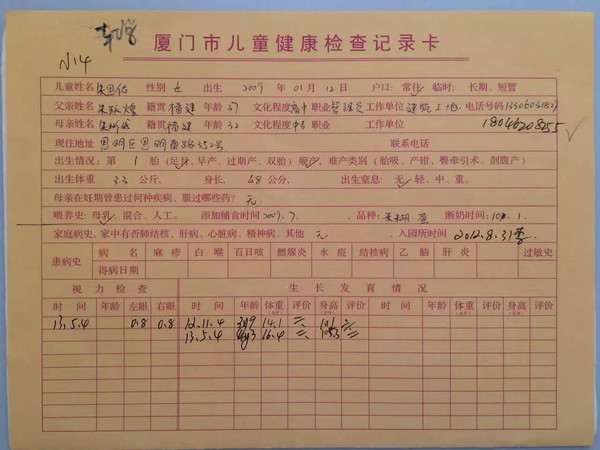 N14
厦门市儿童健康检查记录卡
儿童姓名 性别 女 出生 2009 年 01 月 12 日 户口：常住 临时：长期、短暂
父亲姓名 籍贯 福建 年龄 37 文化程度 高中 职业 管理员 工作单位 建筑工地 电话号码
母亲姓名 籍贯 福建 年龄 32 文化程度 职业 工作单位 18046208255
现住地址 思明区思明南路352号 联系电话
出生情况：第 1 胎（足月、早产、过期产、双胎）顺产、难产类别（胎吸、产钳、臀牵引术、剖腹产）
出生体重 3.3 公斤， 身长， 48 公分， 出生窒息：无、轻、中、重。
母亲在妊期曾患过何种疾病、服过哪些药？ 无
喂养史：母乳、混合、人工。 添加辅食时间 2009.7. 品种： 米糊 断奶时间：
家庭病史，家中有否肺结核、肝病、心脏病、精神病、其他 无 、入园所时间 2012.8.31
患病史 病名 麻疹 白喉 百日咳 腮腺炎 水痘 结核病 乙脑 肝炎 过敏史
得病日期
视力检查 生长发育情况
时间 年龄 左眼 右眼 时间 年龄 体重 评价 身高 评价 时间 年龄 体重 评价 身高 评价
13.5.4 0.8 0.8 12.11.4 3y9 14.1 三 101 三
13.5.4 4y3 16.4 三